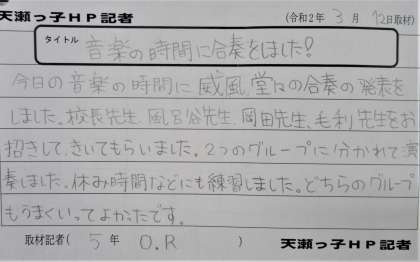 天瀬っ子HP記者 (令和2年 3月 12日取材)
タイトル 音楽の時間に合奏をしました!
今日の音楽の時間に威風堂々の合奏の発表を
しました。校長先生、風呂谷先生、岡田先生、毛利先生をお
招きして、きいてもらいました。2つのグループに分かれて演
奏しました。休み時間などにも練習しました。どちらのグループ
もうまくいってよかったです。
取材記者( 5年 O.R ) 天瀬っ子HP記者